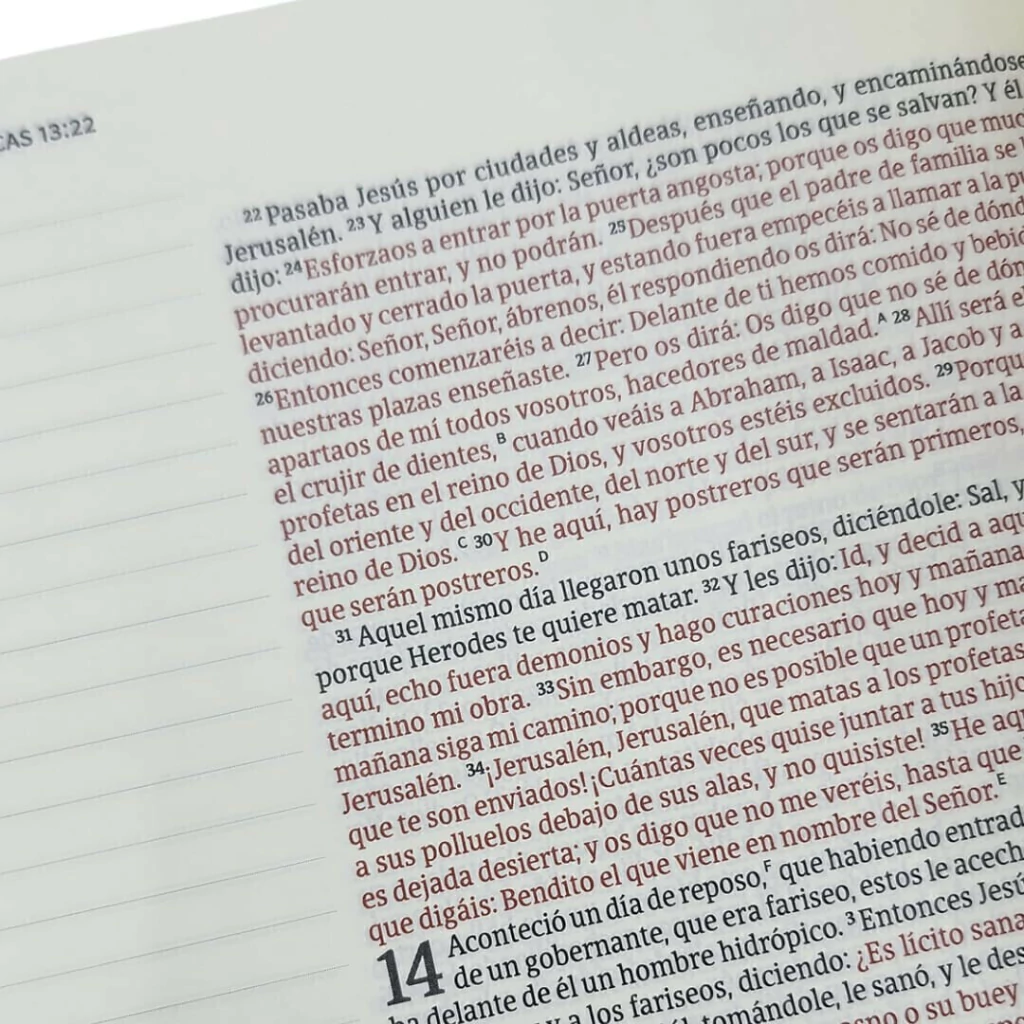 13:22
22 Pasaba Jesús por ciudades y aldeas, enseñando, y encaminándose
Jerusalén. 23 Y alguien le dijo: Señor, ¿son pocos los que se salvan? Y él
dijo: 24 Esforzaos a entrar por la puerta angosta; porque os digo que
procurarán entrar, y no podrán. 25 Después que el padre de familia se
levantado y cerrado la puerta, y estando fuera empecéis a llamar a la
diciendo: Señor, Señor, ábrenos, él respondiendo os dirá: No sé de
26 Entonces comenzaréis a decir: Delante de ti hemos comido y
nuestras plazas enseñaste. 27 Pero os dirá: Os digo que no sé de
apartaos de mí todos vosotros, hacedores de maldad.A 28 Allí será
el crujir de dientes,B cuando veáis a Abraham, a Isaac, a Jacob y a
profetas en el reino de Dios, y vosotros estéis excluidos. 29
del oriente y del occidente, del norte y del sur, y se sentarán a la
reino de Dios.C 30 Y he aquí, hay postreros que serán primeros,
que serán postreros.D
31 Aquel mismo día llegaron unos fariseos, diciéndole: Sal, y
porque Herodes te quiere matar. 32 Y les dijo: Id, y decid a
aquí, echo fuera demonios y hago curaciones hoy y mañana
termino mi obra. 33 Sin embargo, es necesario que hoy y
mañana siga mi camino; porque no es posible que un profeta
Jerusalén. 34 ¡Jerusalén, Jerusalén, que matas a los profetas
que te son enviados! ¡Cuántas veces quise juntar a tus
a sus polluelos debajo de sus alas, y no quisiste! 35 He
es dejada desierta; y os digo que no me veréis, hasta que
que digáis: Bendito el que viene en nombre del Señor.E
14 Aconteció un día de reposo,F que habiendo
de un gobernante, que era fariseo, estos le
delante de él un hombre hidrópico. 3 Entonces
a los fariseos, diciendo: ¿Es lícito
tomándole, le sanó, y le
o su buey